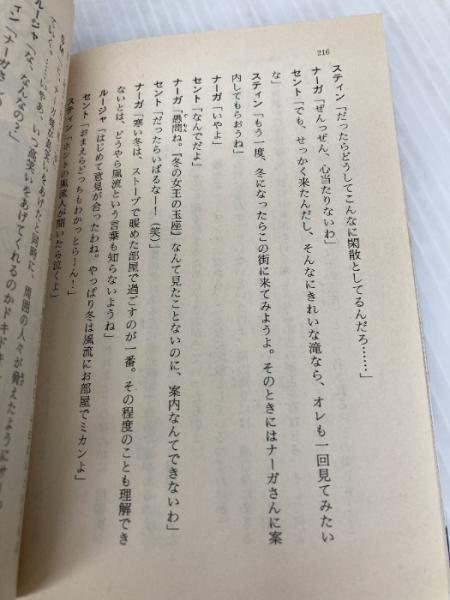 216
スティン「だったらどうしてこんなに閑散としてるんだろ……」
ナーガ「ぜんっぜん、心当たりないわ」
セント「でも、せっかく来たんだし、そんなにきれいな滝なら、オレも一回見てみたい
な」
スティン「もう一度、冬になったらこの街に来てみようよ。そのときにはナーガさんに案
内してもらおうね」
ナーガ「いやよ」
セント「なんでだよ」
ナーガ「愚問ね。『冬の女王の玉座』なんて見たことないのに、案内なんてできないわ」
セント「だったらいばるなー！（笑）」
ナーガ「寒い冬は、ストーブで暖めた部屋で過ごすのが一番。その程度のことも理解でき
ないとは、どうやら風流という言葉も知らないようね」
ルージャ「はじめて意見が合ったわね。やっぱり冬は風流にお部屋でミカンよ」
セント「おまえらどっちもわかっとらーん！」
スティン「ホントの風流人が聞いたら泣くよ」
いつ高笑いをあげてくれるのかドキドキ
笑いをあげたと同時に、周囲の人々が脅えたように
ルージャ「な、なんなの？」